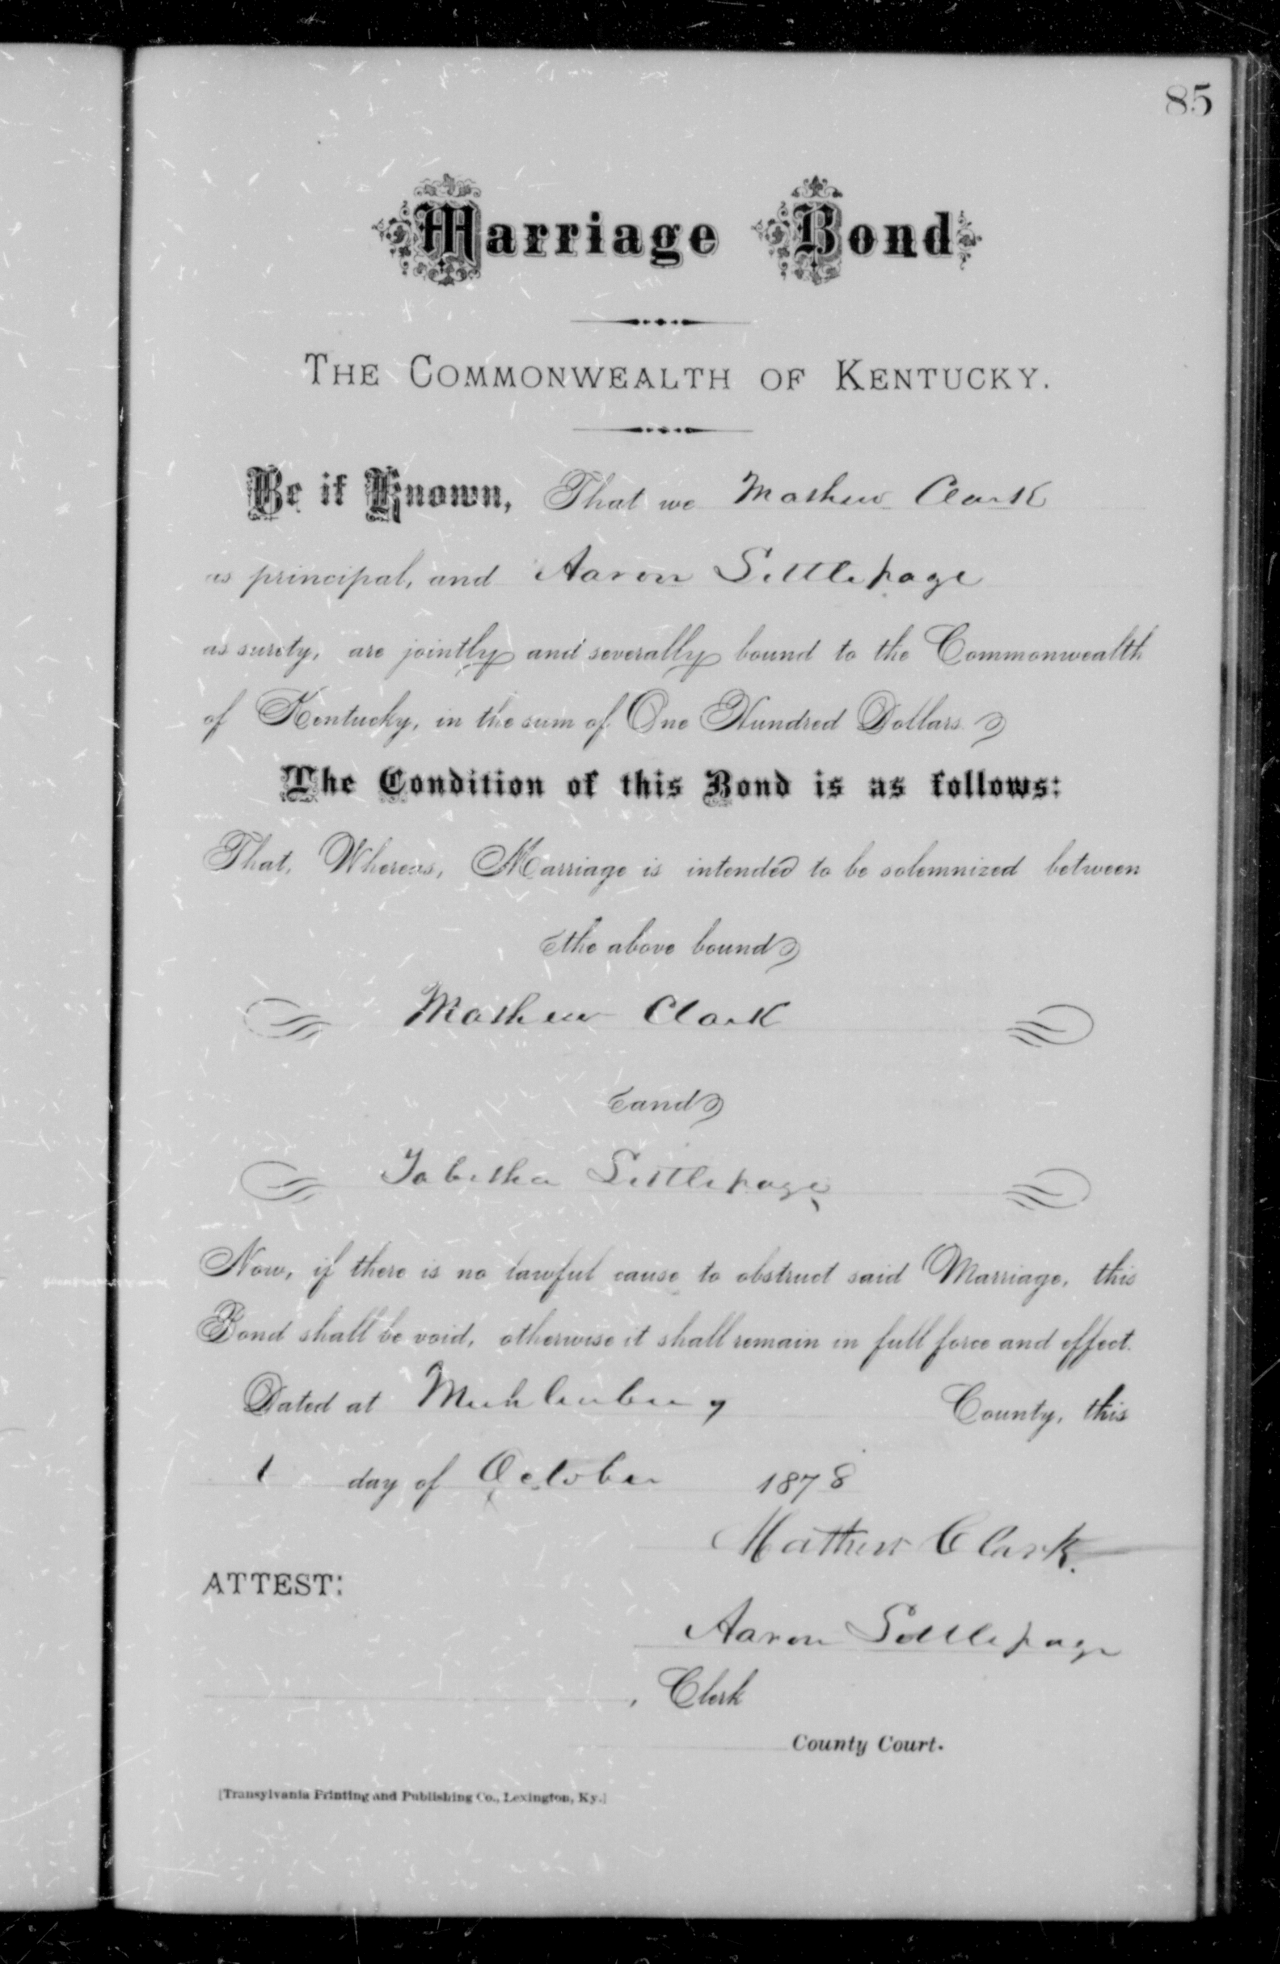 85
Marriage Bond
THE COMMONWEALTH OF KENTUCKY.
Be it Known, That we Mathew Clark
as principal, and Aaron Settlepage
as surety, are jointly and severally bound to the Commonwealth
of Kentucky, in the sum of One Hundred Dollars.
The Condition of this Bond is as follows:
That, Whereas, Marriage is intended to be solemnized between
the above bound
Mathew Clark
and
Tabitha Settlepage
Now, if there is no lawful cause to obstruct said Marriage, this
Bond shall be void, otherwise it shall remain in full force and effect.
Dated at Muhlenberg County, this
1 day of October 1878
Mathew Clark.
ATTEST:
Aaron Settlepage
, Clerk
County Court.
[Transylvania Printing and Publishing Co., Lexington, Ky.]